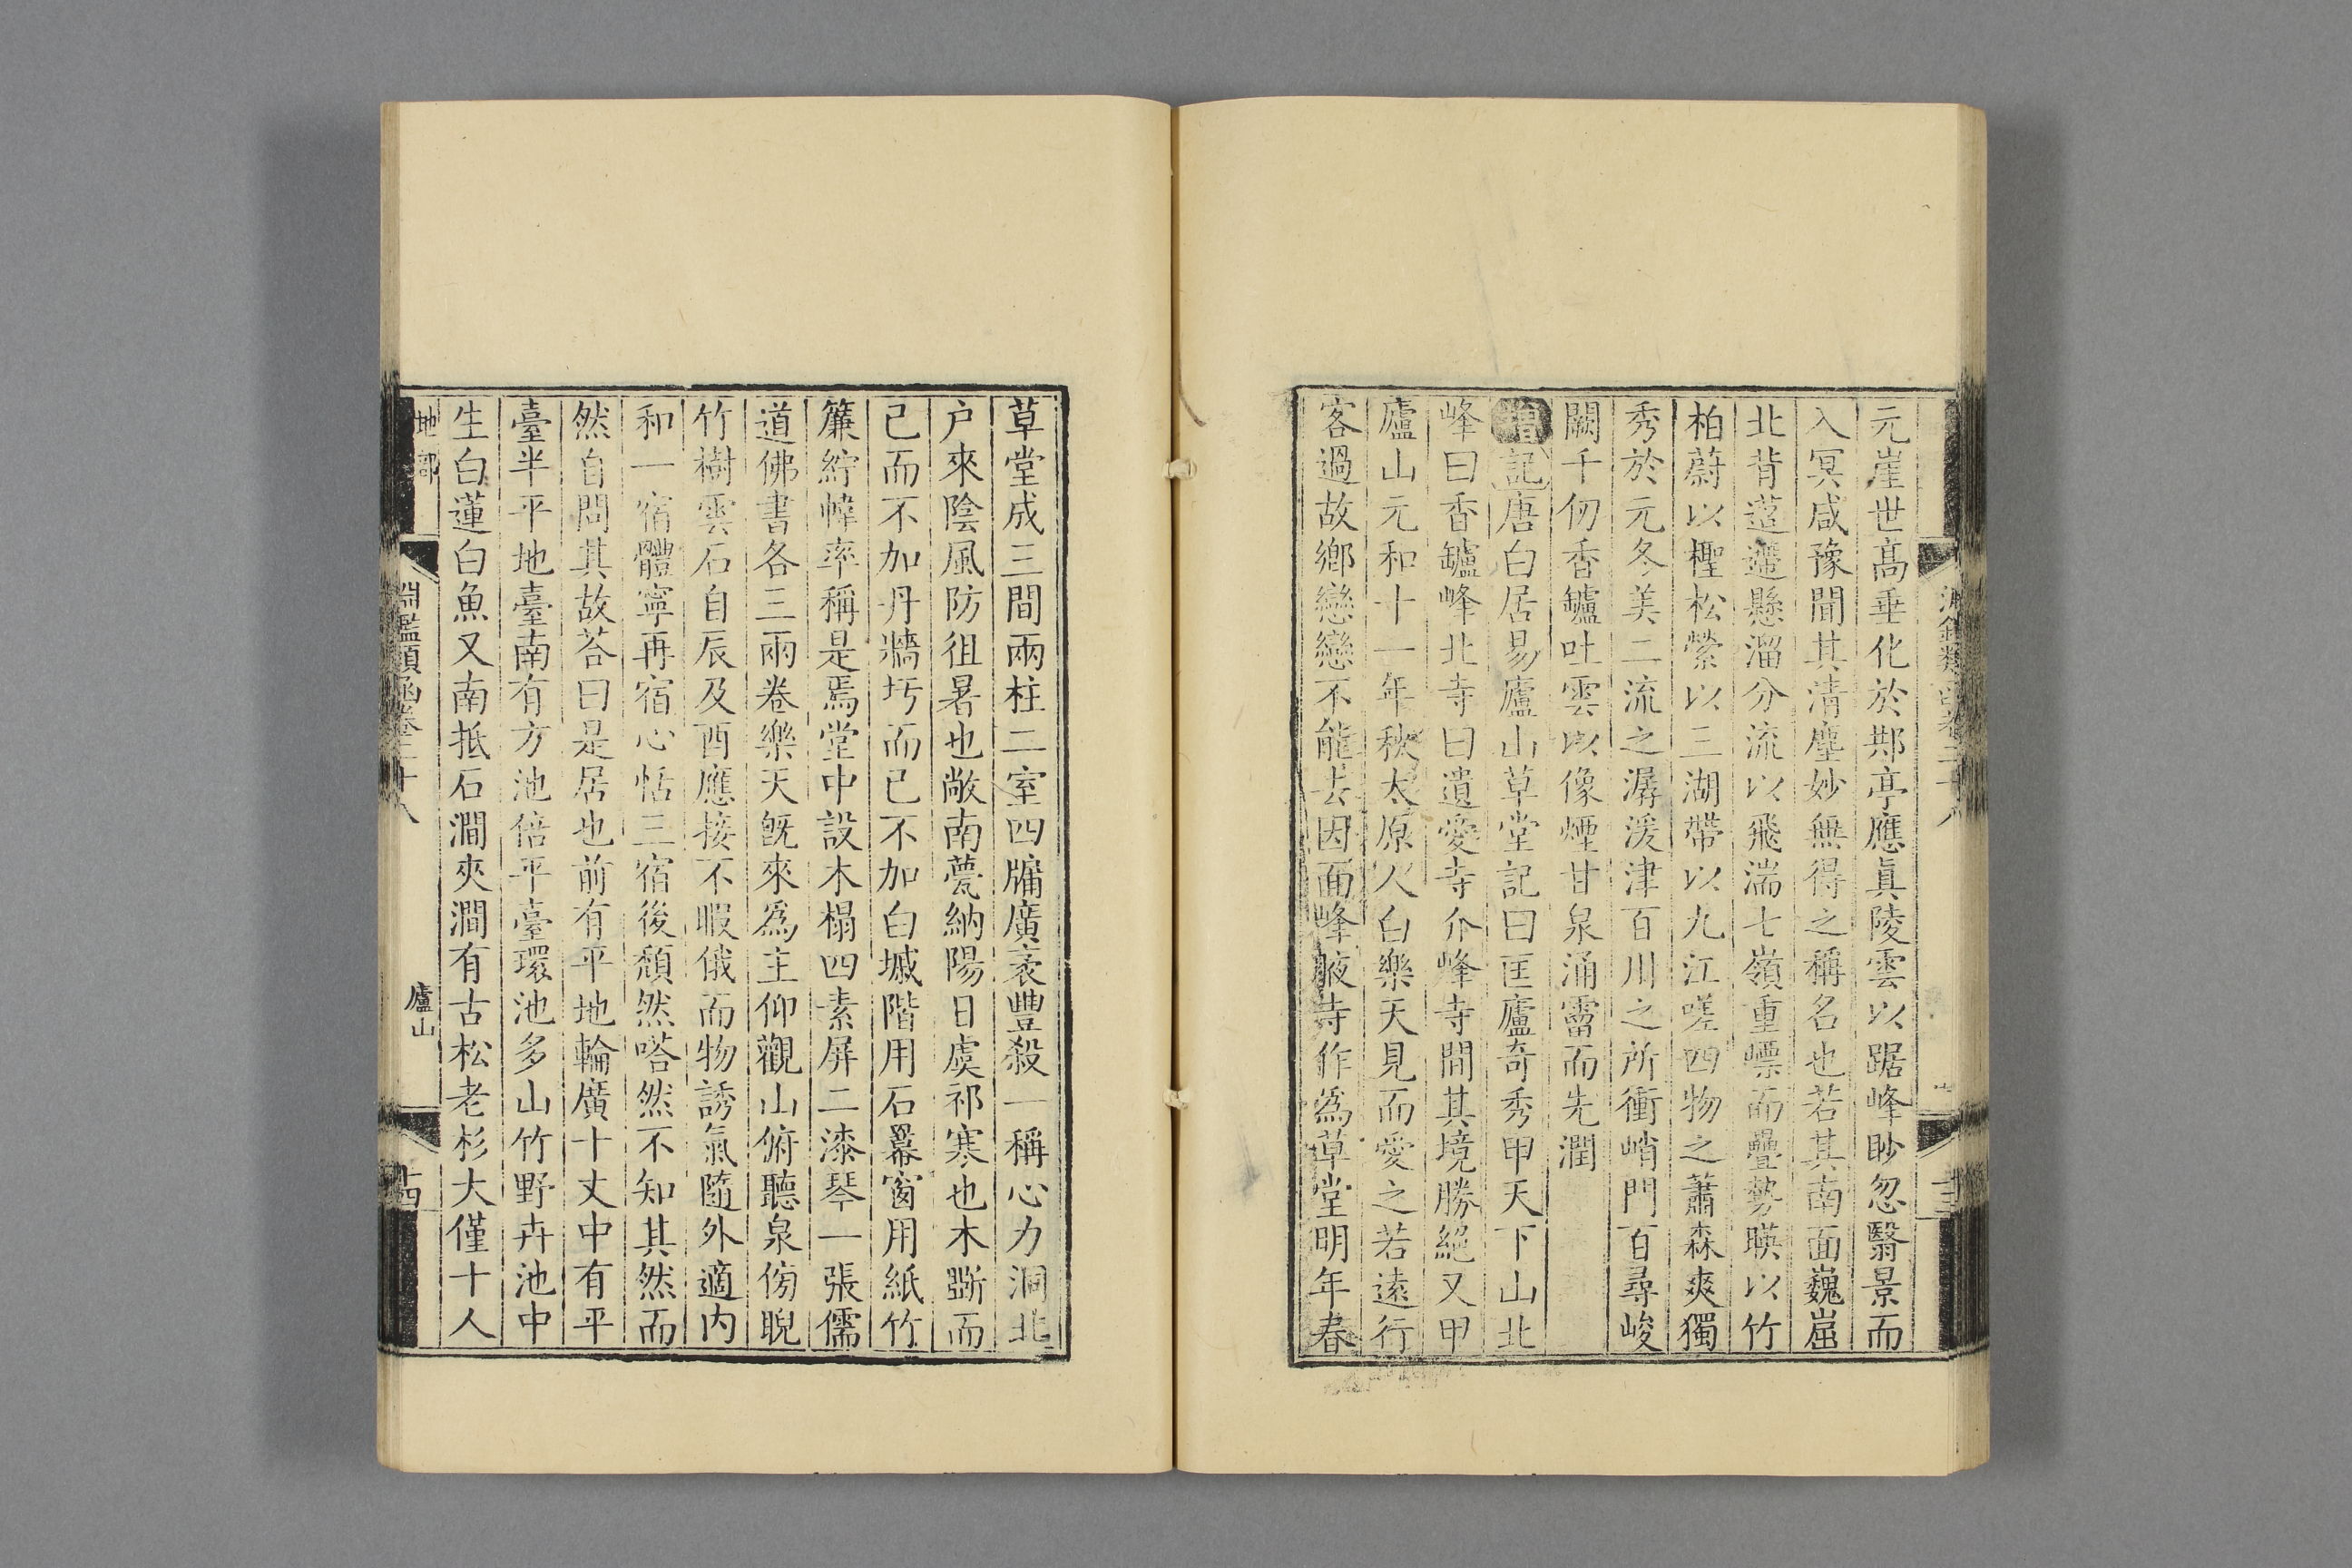 元崖世高垂化於鄍亭應眞陵雲以踞峰眇忽翳景而
入冥咸豫聞其清塵妙無得之稱名也若其南面巍崫
北背迢遰懸溜分流以飛湍七嶺重嘌而疊勢暎以竹
柏蔚以檉松縈以三湖帶以九江嗟四物之蕭森爽獨
秀於元冬美二流之潺湲津百川之所衝峭門百尋峻
闕千仞香鑪吐雲以像煙甘泉涌霤而先潤
記唐白居易廬山草堂記曰匡廬奇秀甲天下山北
峰曰香鑪峰北寺曰遺愛寺介峰寺間其境勝絕又甲
廬山元和十一年秋太原人白樂天見而愛之若遠行
客過故鄉戀戀不能去因面峰腋寺作爲草堂明年春
草堂成三間兩柱二室四牖廣袤豐殺一稱心力洞北
户來陰風防徂暑也敞南甍納陽日虞祁寒也木斲而
已而不加丹牆圬而已不加白墄階用石羃窗用紙竹
簾紵幃率稱是焉堂中設木榻四素屏二漆琴一張儒
道佛書各三兩卷樂天旣來爲主仰觀山俯聽泉傍睨
竹樹雲石自辰及酉應接不暇俄而物誘氣隨外適内
和一宿體寧再宿心恬三宿後頹然嗒然不知其然而
然自問其故荅曰是居也前有平地輪廣十丈中有平
臺半平地臺南有方池倍平臺環池多山竹野卉池中
生白蓮白魚又南抵石澗夾澗有古松老杉大僅十人
地部
淵鑑類函卷二十八
廬山
十四